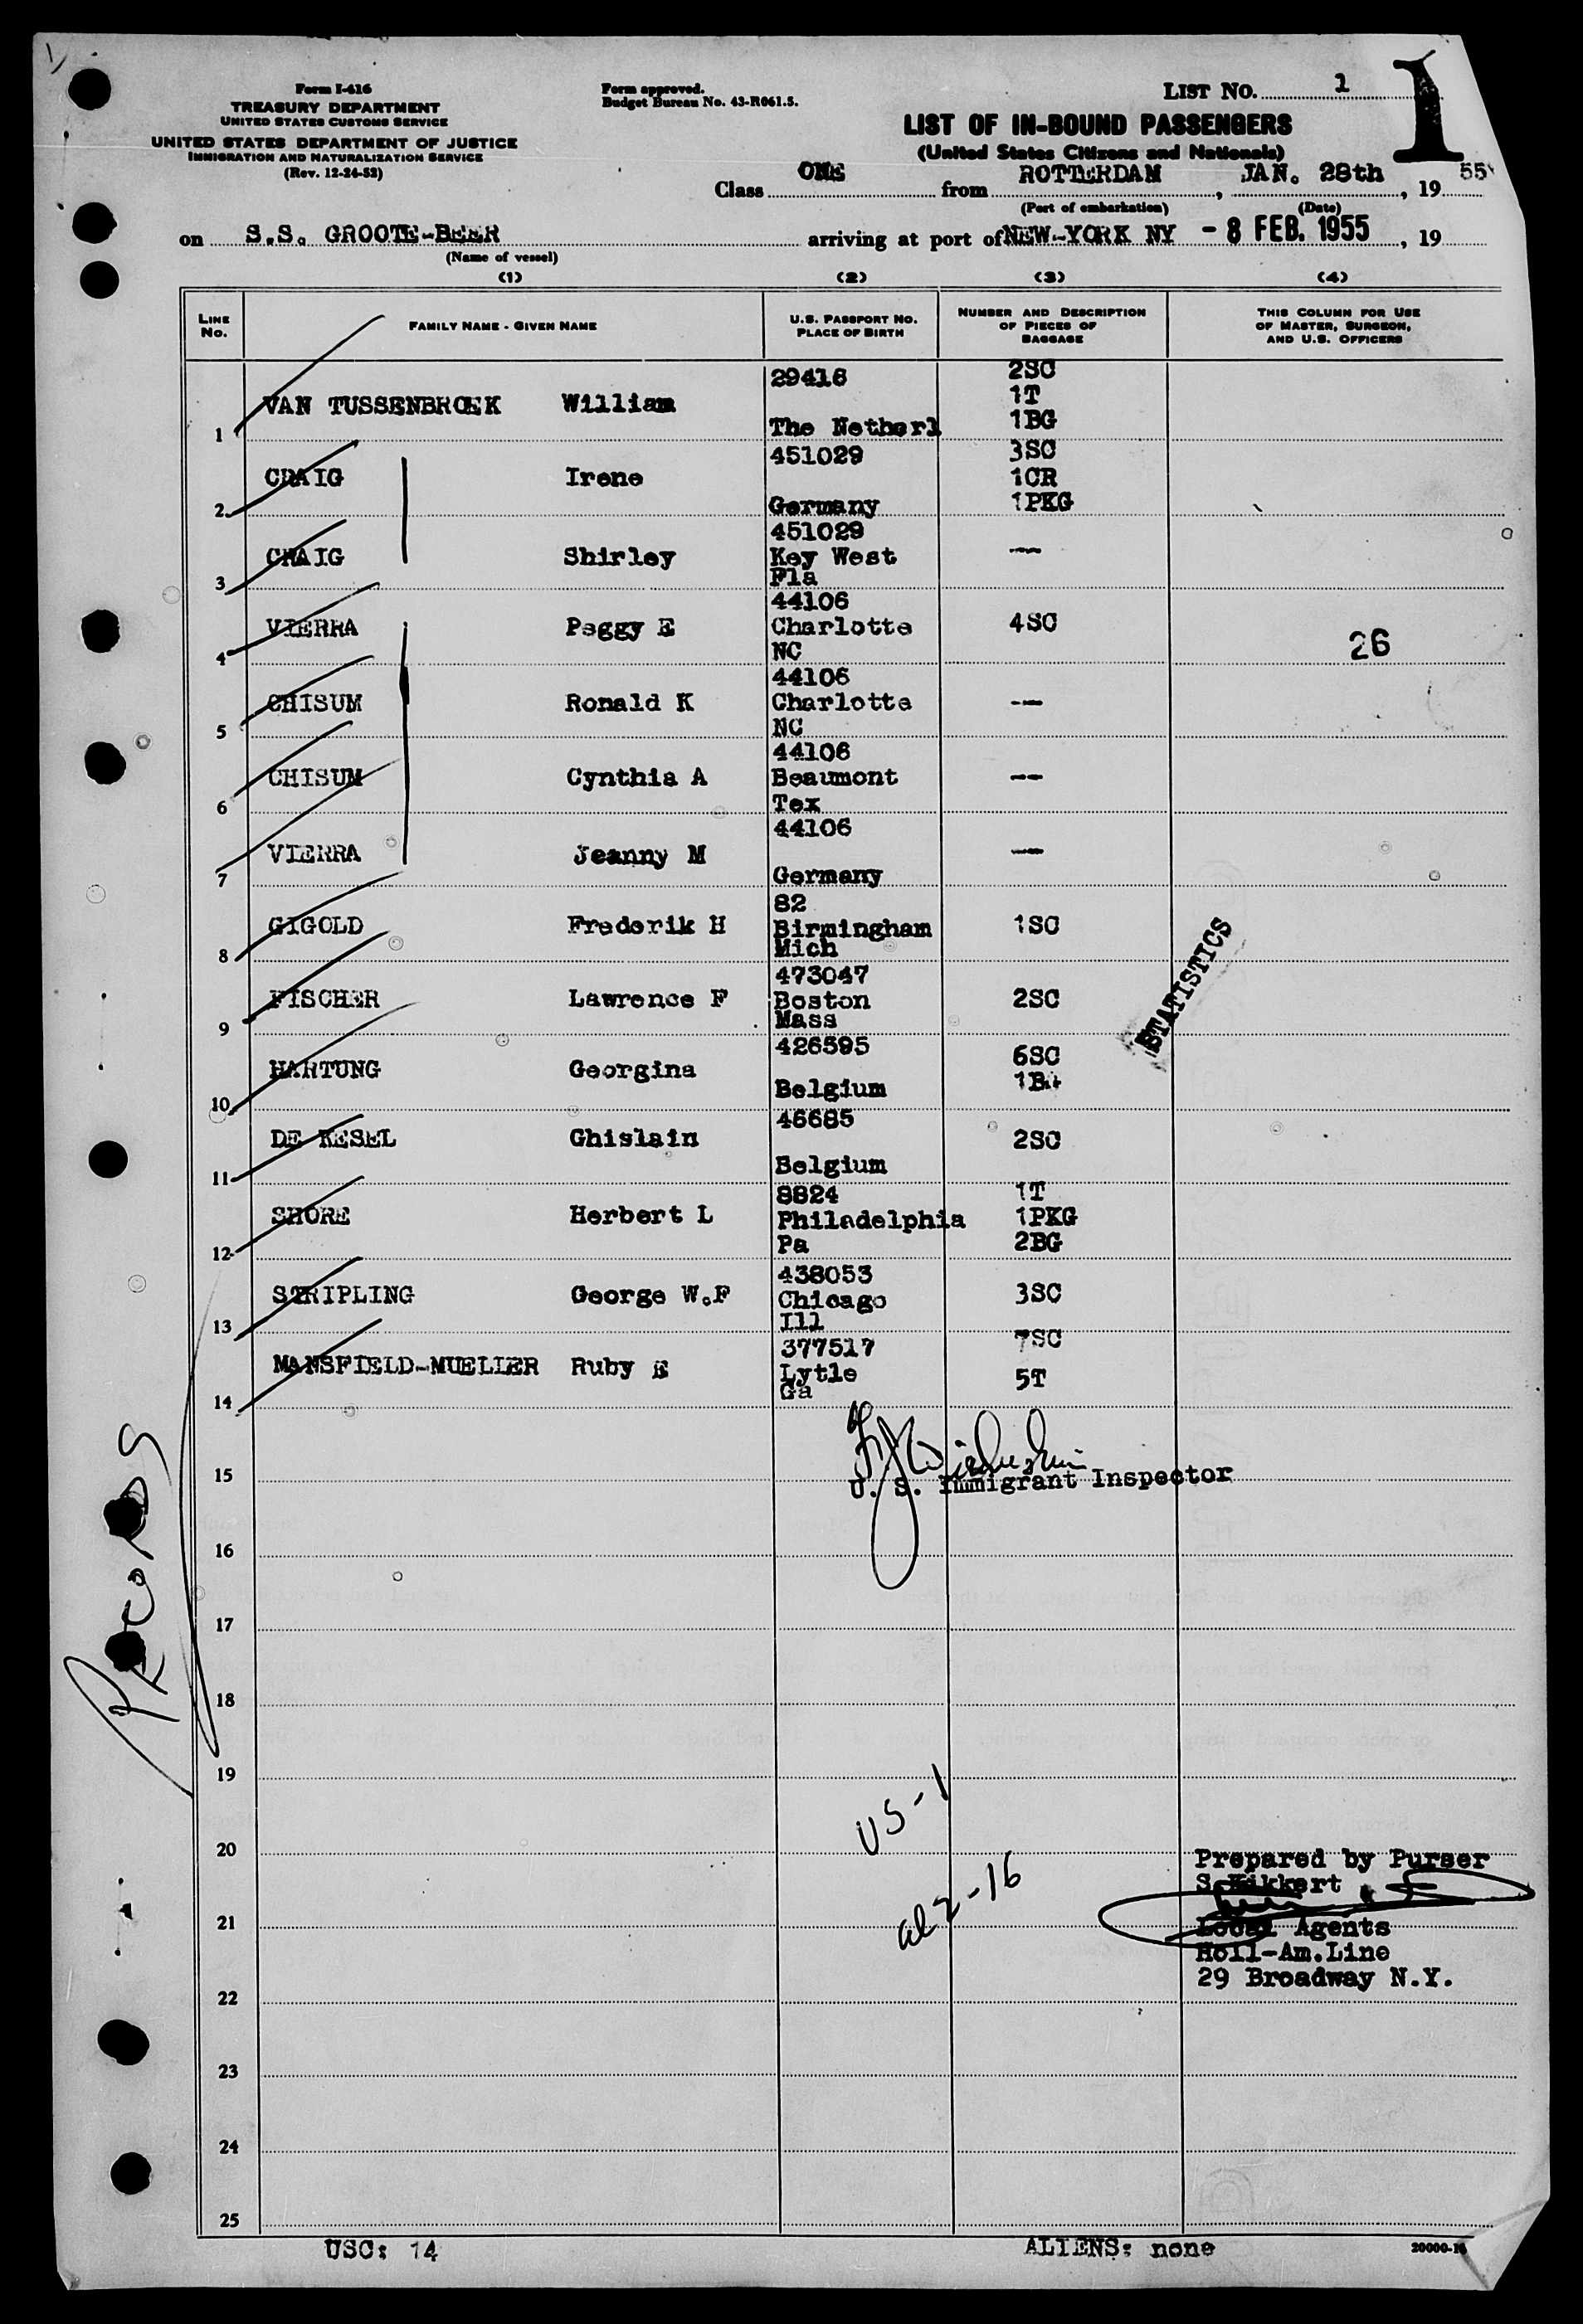 Form I-416
TREASURY DEPARTMENT
UNITED STATES CUSTOMS SERVICE
UNITED STATES DEPARTMENT OF JUSTICE
IMMIGRATION AND NATURALIZATION SERVICE
(Rev. 12-24-52)
Form approved.
Budget Bureau No. 43-R061.5.
LIST NO. 1
1
LIST OF IN-BOUND PASSENGERS
(United States Citizens and Nationals)
Class ONE from ROTTERDAM, JAN. 28th, 19 55
(Port of embarkation) (Date)
on S.S. GROOTE-BEER arriving at port of NEW-YORK NY - 8 FEB. 1955, 19
(Name of vessel)
(1) (2) (3) (4)
LINE No. FAMILY NAME - GIVEN NAME U.S. PASSPORT NO. PLACE OF BIRTH NUMBER AND DESCRIPTION OF PIECES OF BAGGAGE THIS COLUMN FOR USE OF MASTER, SURGEON, AND U.S. OFFICERS
1 VAN TUSSENBROEK William 29416 The Netherl 2SC 1T 1BG
2 CRAIG Irene 451029 Germany 3SC 1CR 1PKG
3 CRAIG Shirley 451029 Key West Fla --
4 VIERRA Peggy E 44106 Charlotte NC 4SC 26
5 CHISUM Ronald K 44106 Charlotte NC --
6 CHISUM Cynthia A 44106 Beaumont Tex --
7 VIERRA Jeanny M 44106 Germany --
8 GIGOLD Frederik H 82 Birmingham Mich 1SC
9 FISCHER Lawrence F 473047 Boston Mass 2SC
STATISTICS
10 HARTUNG Georgina 426595 Belgium 6SC
11 DE KESEL Ghislain 46685 Belgium 2SC
12 SHORE Herbert L 8824 Philadelphia Pa 1T 1PKG 2BG
13 STRIPLING George W.F 438053 Chicago Ill 3SC
14 MANSFIELD-MUELLER Ruby E 377517 Lytle Ga 7SC 5T
15 U. S. Immigrant Inspector
16
RECORDS
17
18
19
US-1
20
Prepared by Purser
S.Kikkert
21
Local Agents
Holl-Am.Line
29 Broadway N.Y.
22
23
24
25
USC: 14 ALIENS: none 20000-16